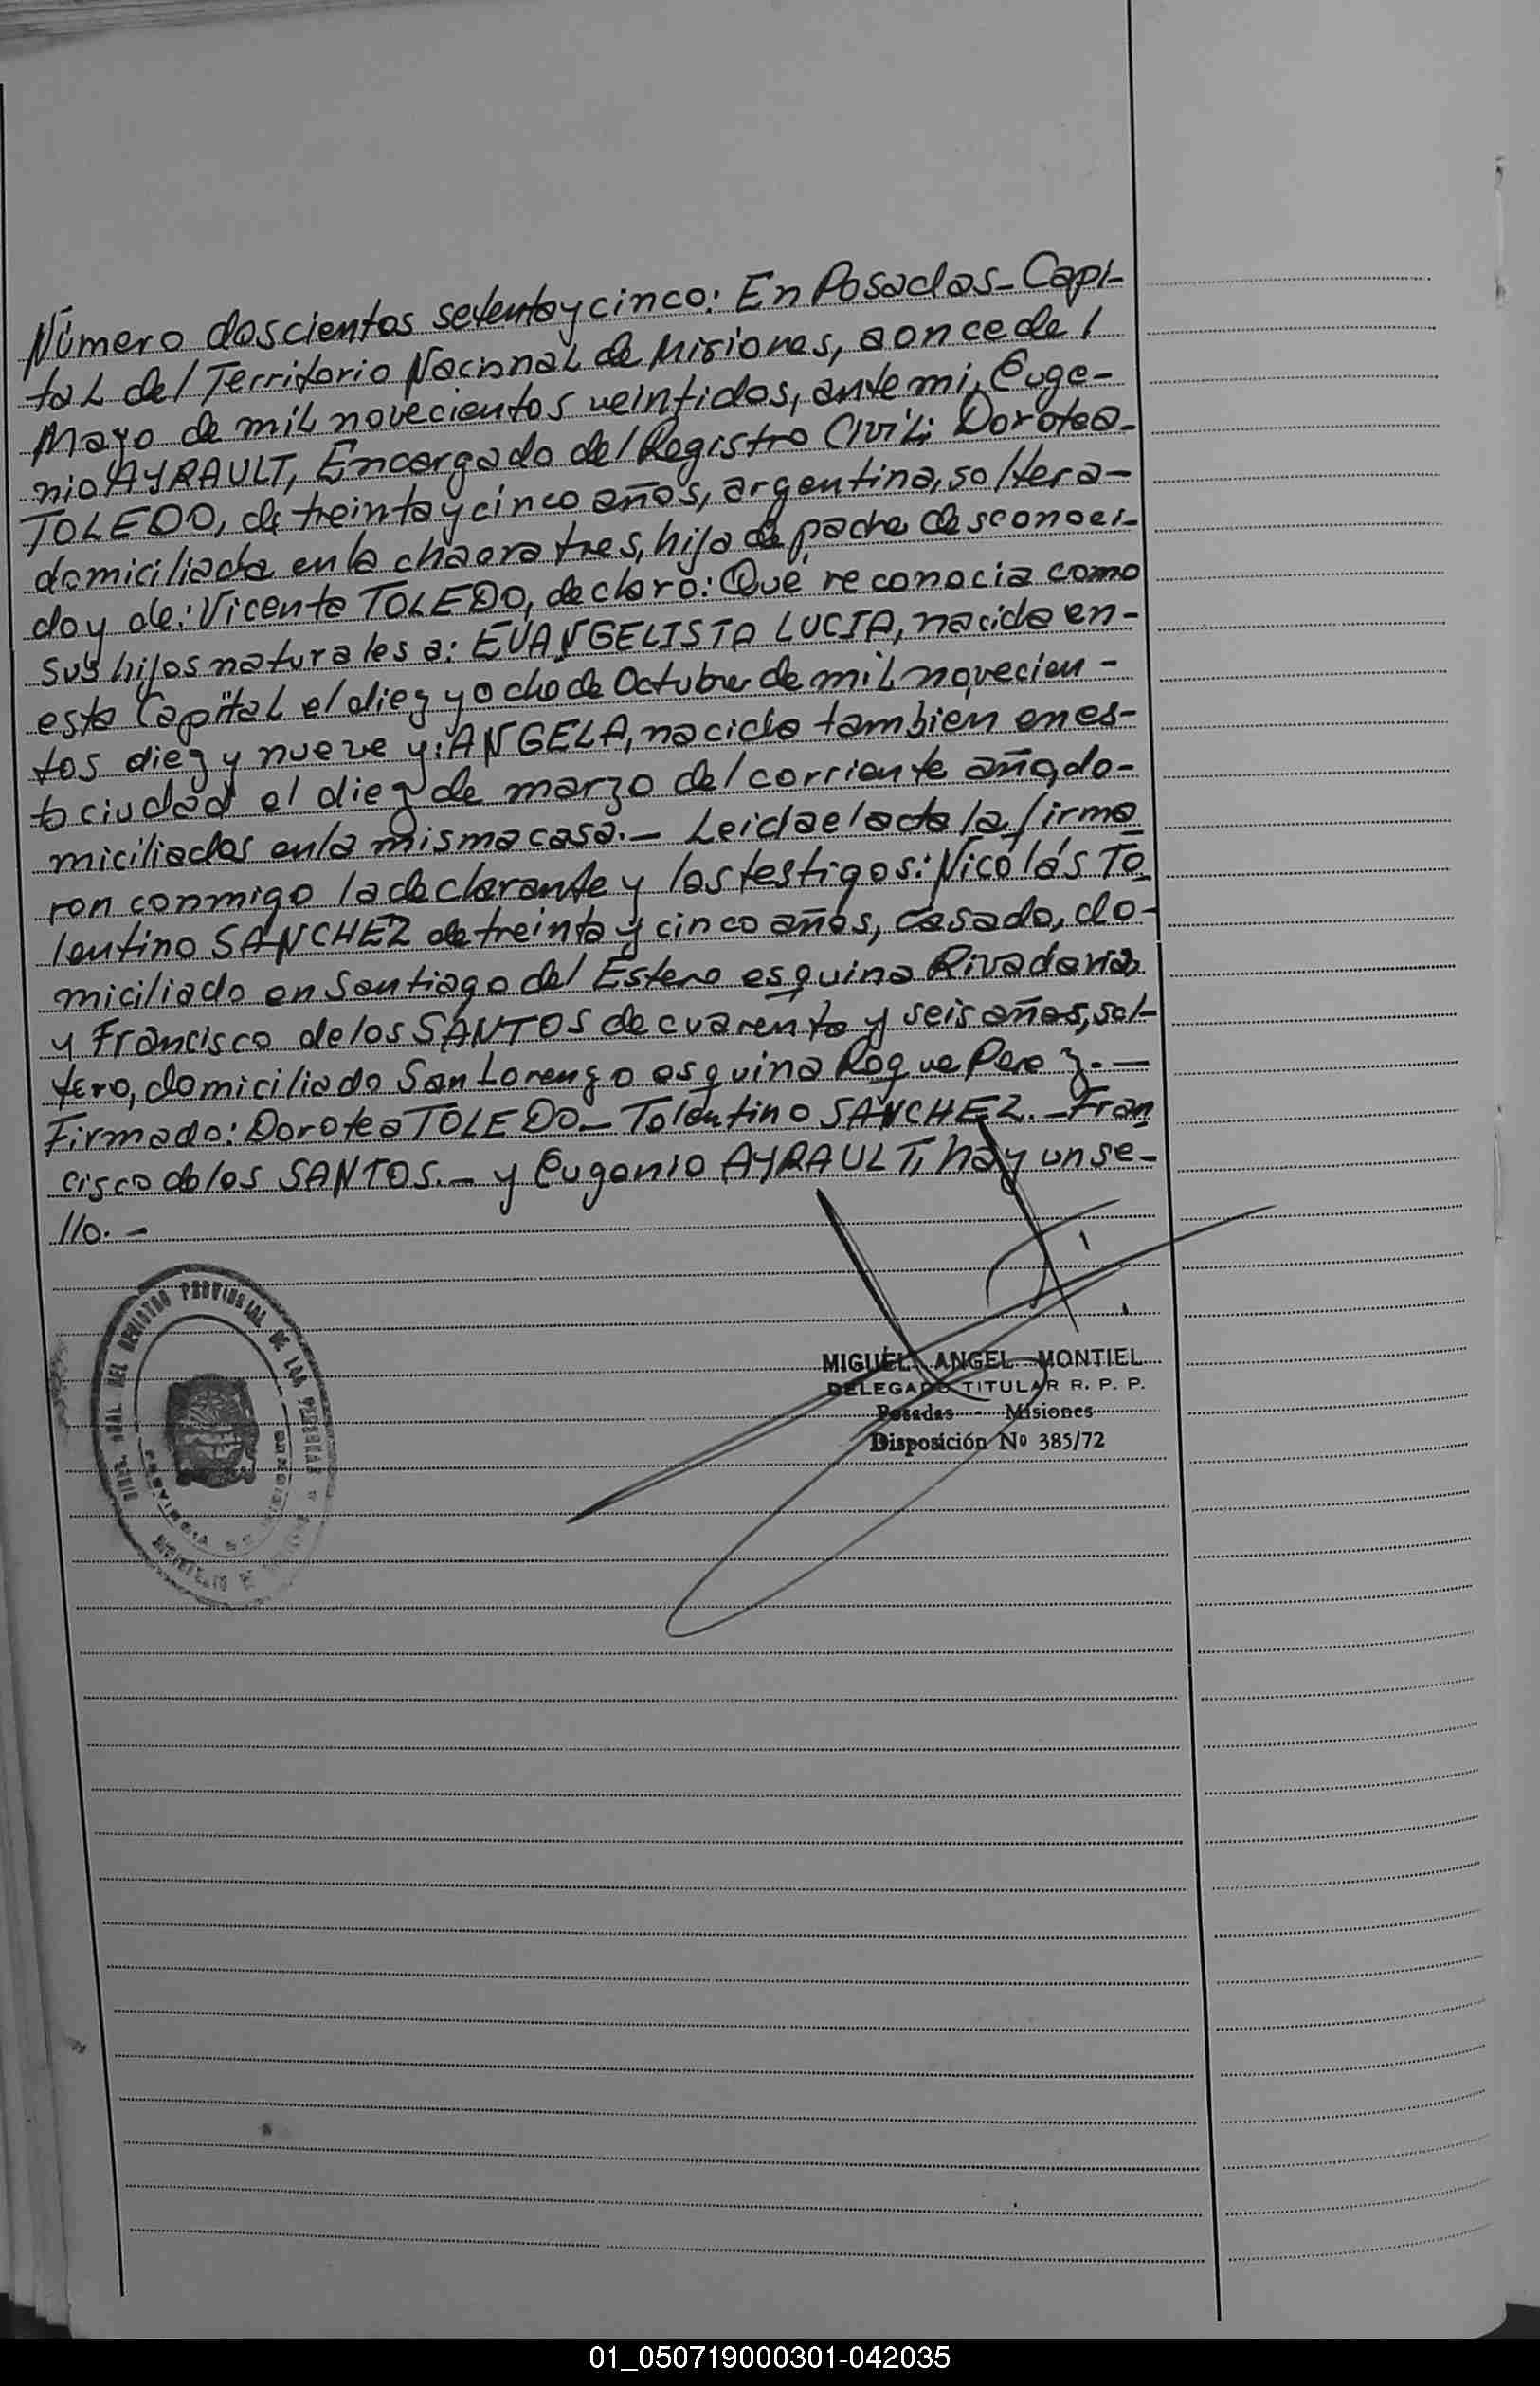 Número doscientos setenta y cinco: En Posadas - Capi-
tal del Territorio Nacional de Misiones, a once del
Mayo de mil novecientos veintidos, ante mi, Euge-
nio AYRAULT, Encargado del Registro Civil; Dorotea -
TOLEDO, de treinta y cinco años, argentina, soltera -
domiciliada en la chacra tres, hija de padre desconoci-
do y de: Vicenta TOLEDO, declaró: Qué reconocia como
sus hijos naturales a: EVANGELISTA LUCIA, nacida en -
esta Capital el diez y ocho de Octubre de mil novecien -
tos diez y nueve y: ANGELA, nacida tambien en es-
ta ciudad el diez de marzo del corriente año, do-
miciliados en la misma casa. - Leida el acta la firma
ron conmigo la declarante y los testigos: Nicolás To
lentino SANCHEZ de treinta y cinco años, casado, do-
miciliado en Santiago del Estero esquina Rivadavia
y Francisco de los SANTOS de cuarenta y seis años, sol-
tero, domiciliado San Lorenzo esquina Roque Perez. -
Firmado: Dorotea TOLEDO - Tolentino SANCHEZ. - Fran
cisco de los SANTOS. - y Eugenio AYRAULT, hay un se-
llo. -
GRAL DEL REGISTRO PROVINCIAL DE LAS PERSONAS
PROVINCIA DE
MIGUEL ANGEL MONTIEL
DELEGADO TITULAR R. P. P.
Posadas - Misiones
Disposición Nº 385/72
01_050719000301-042035